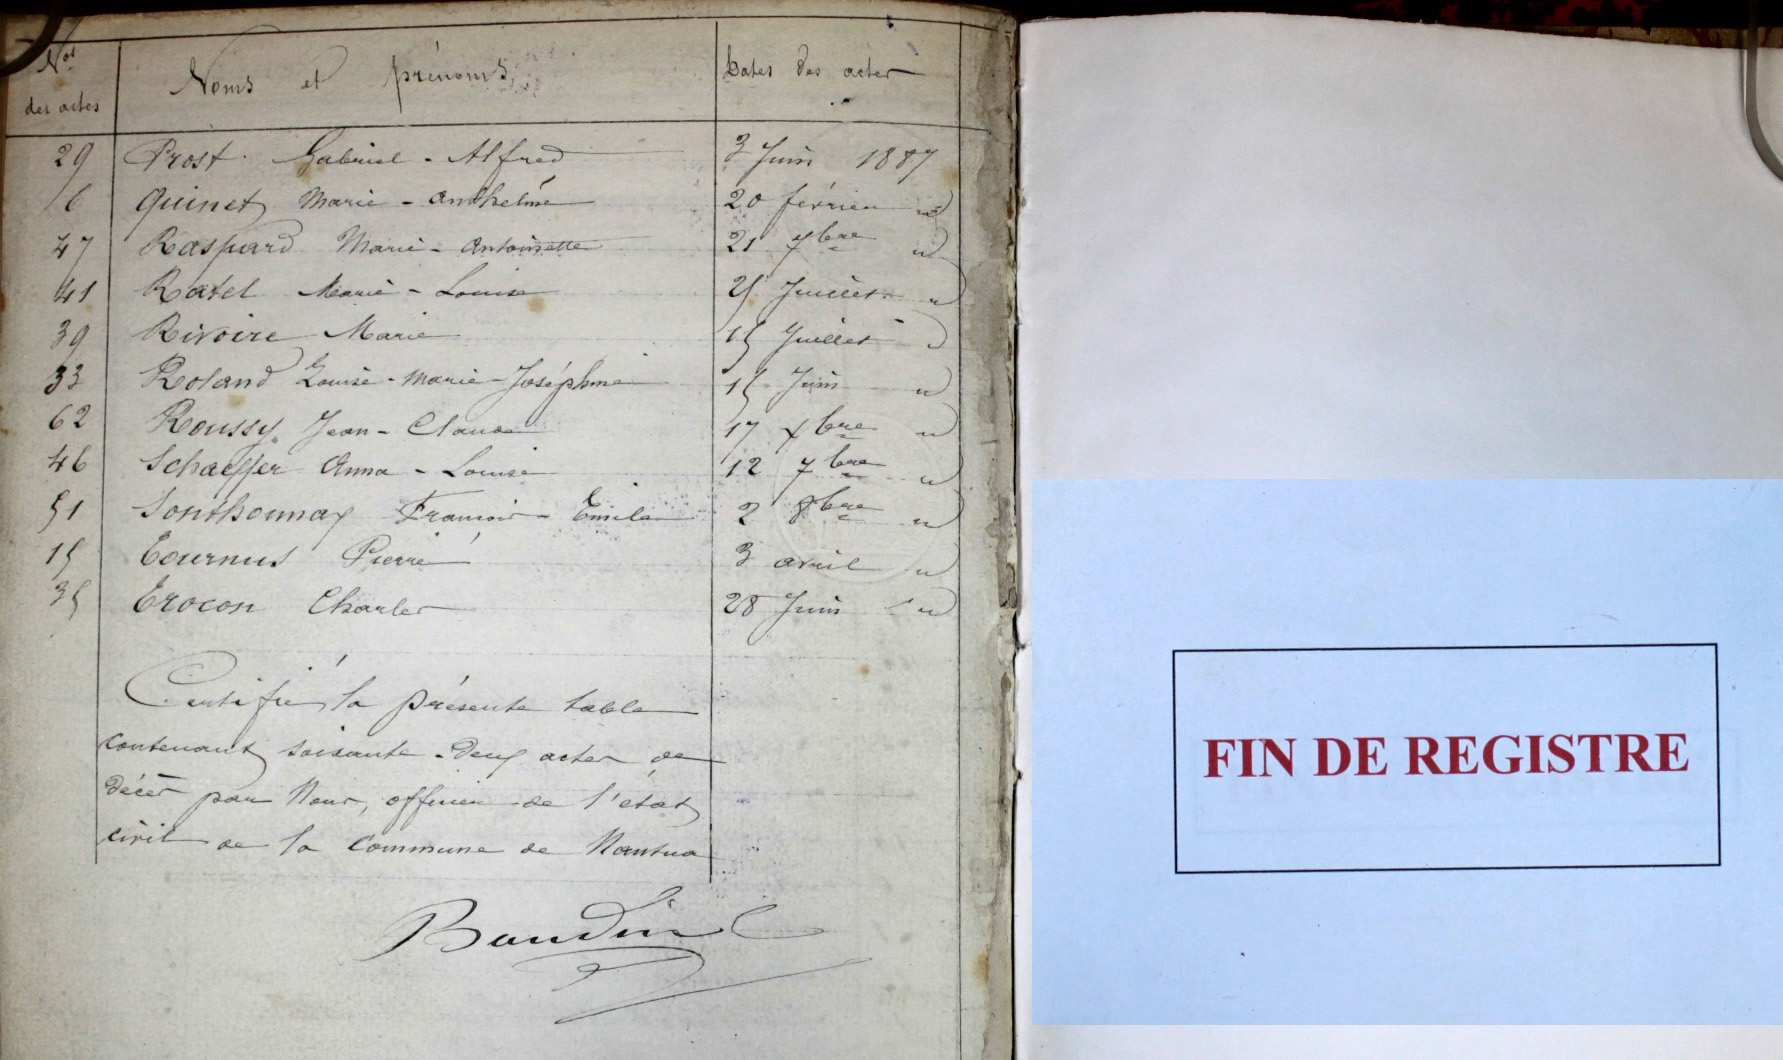 Nos des actes Noms et prénoms Dates des actes
29 Prost Gabriel - Alfred 3 Juin 1887
6 Quinet Marie - Anthelme 20 février "
47 Raspard Marie - Antoinette 21 7bre "
41 Ratel Marie - Louise 25 Juillet "
39 Rivoire Marie 15 Juillet "
33 Roland Louise - Marie - Joséphine 15 Juin "
62 Roussy Jean - Claude 17 Xbre "
46 Schaeffer Anna - Louise 12 7bre "
51 Sonthonnax François - Emile 2 8bre "
15 Tournus Pierre 3 avril "
35 Trocon Charles 28 Juin "
Certifié la présente table
contenant soixante - deux actes de
décès par Nous, officier de l'état
civil de la commune de Nantua
Baudin
FIN DE REGISTRE